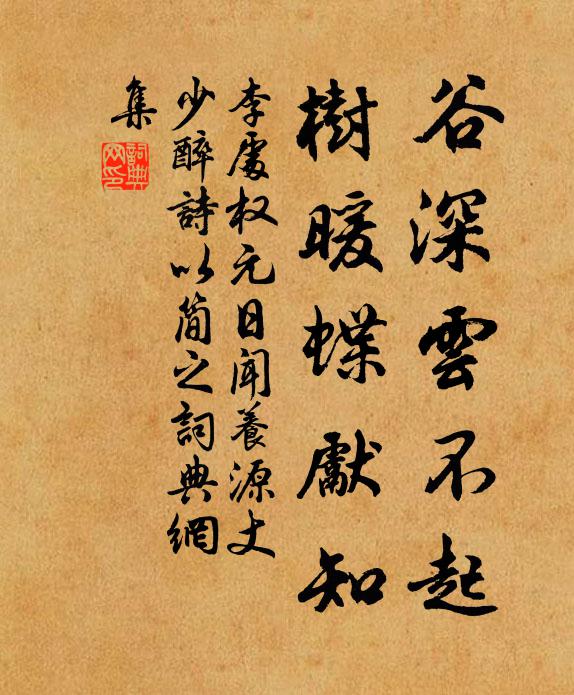 谷深雲不起
樹暖蝶獻知
李處权元日闻養源丈
少醉詩以简之詞典網
集
詞典
网印